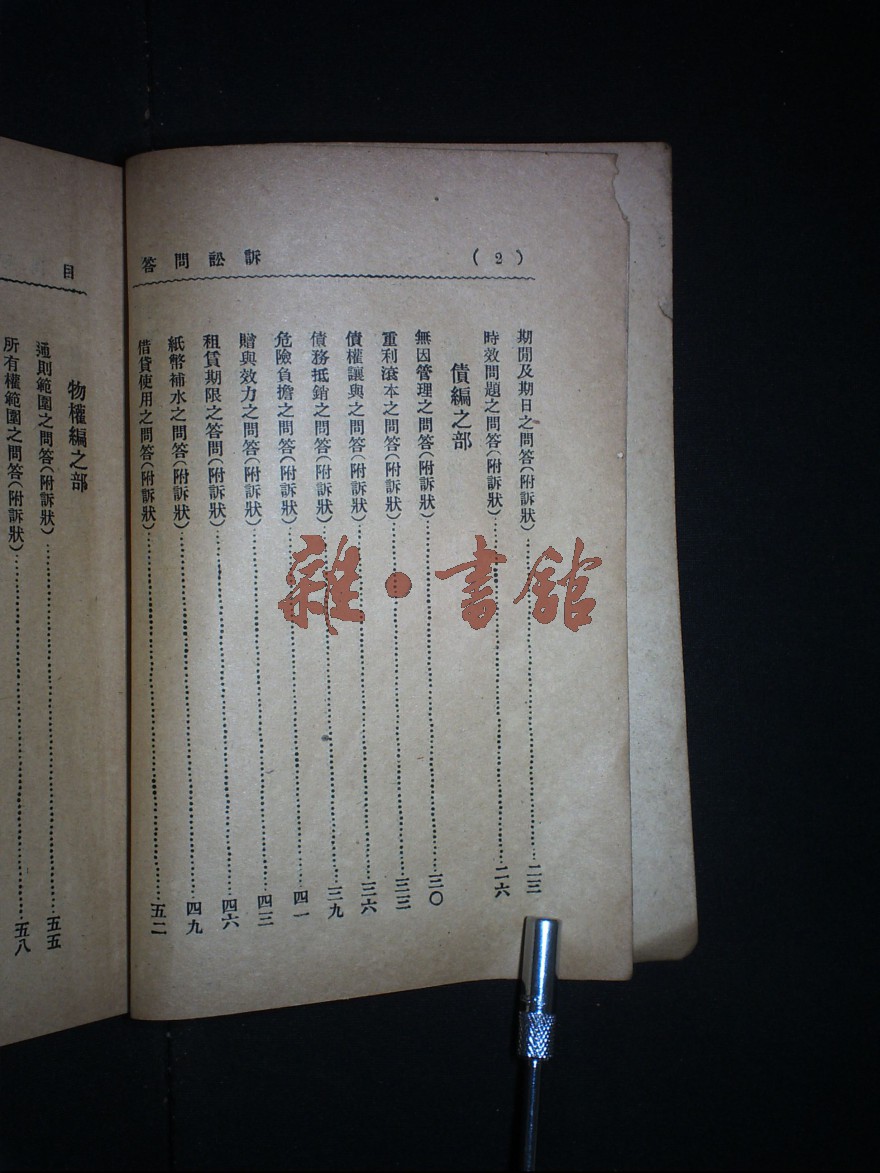 (2)
訴訟問答
期間及期日之問答(附訴狀)……二三
時效問題之問答(附訴狀)……二六
債編之部
無因管理之問答(附訴狀)……三〇
重利滾本之問答(附訴狀)……三三
債權讓與之問答(附訴狀)……三六
債務抵銷之問答(附訴狀)……三九
危險負擔之問答(附訴狀)……四一
贈與效力之問答(附訴狀)……四三
租賃期限之答問(附訴狀)……四六
紙幣補水之問答(附訴狀)……四九
借貸使用之問答(附訴狀)……五二
目
物權編之部
通則範圍之問答(附訴狀)……五五
所有權範圍之問答(附訴狀)……五八
雜·書館